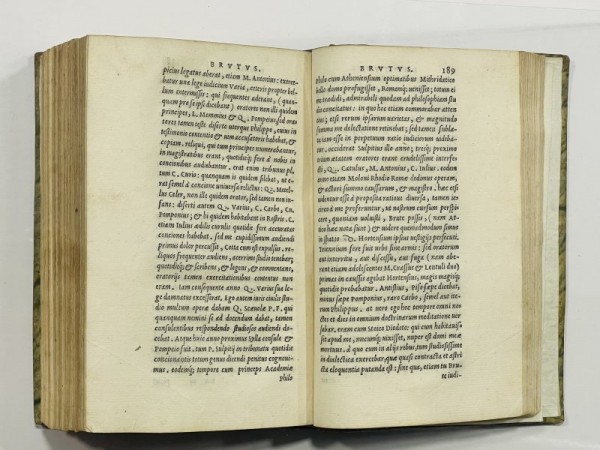 BRVTVS.
picius legatus aberat, etiam M. Antonius: exerce-
batur una lege iudicium Varia, cæteris propter bel-
lum intermissis: cui frequentes aderant, (quan-
quam pro se ipsi dicebant) oratores non illi quidem
principes, L. Memmius & Q. Pompeius, sed ora-
tores tamen teste diserto uterque Philippo, cuius in
testimonio contentio & uim accusatoris habebat, &
copiam. reliqui, qui tum principes numerabantur,
in magistratibus erant, quotidieq; fere à nobis in
concionibus audiebantur. erat enim tribunus ple.
tum C. Curio: quanquam is quidem silebat, ut e-
rat semel à concione uniuersa relictus: Q. Metel-
lus Celer, non ille quidem orator, sed tamen non in-
fans: diserti autem Q. Varius, C. Carbo, Cn.
Pomponius: & hi quidem habitabant in Rostris. C.
etiam Iulius ædilis curulis quotidie fere accuratas
conciones habebat. sed me cupidissimum audiendi
primus dolor percussit, Cotta cum est expulsus. re-
liquos frequenter audiens, acerrimo studio tenebar;
quotidieq; & scribens, & legens, & commentans,
oratorijs tamen exercitationibus contentus non
eram. iam consequente anno Q. Varius sua lege
damnatus excesserat. Ego autem iuris ciuilis stu-
dio multum operæ dabam Q. Scæuolæ P. F. qui
quanquam nemini se ad docendum dabat, tamen
consulentibus respondendo studiosos audiendi do-
cebat. Atque huic anno proximus Sylla consule &
Pompeio fuit. tum P. Sulpitij in tribunatu quotidie
concionantis totum genus dicendi penitus cognoui-
mus. eodemq; tempore cum princeps Academiæ
Philo
BRVTVS. 189
Philo cum Atheniensium optimatibus Mithridatico
bello domo profugisset, Romamq; uenisset; totum ei
me tradidi, admirabili quodam ad philosophiam stu-
dio concitatus: in quo hoc etiam commorabar atten-
tius; etsi rerum ipsarum uarietas, & magnitudo
summa me delectatione retinebat; sed tamen sublata
iam esse in perpetuum ratio iudiciorum uideba-
tur. occiderat Sulpitius illo anno; tresq; proximo
trium ætatum oratores erant crudelissime interfe-
cti, Q. Catulus, M. Antonius, C. Iulius. eodem
anno etiam Moloni Rhodio Romæ dedimus operam,
& actori summo caussarum, & magistro. hæc etsi
uidentur esse à proposita ratione diuersa, tamen i-
circo à me proferuntur, ut nostrum cursum perspi-
cere, quoniam uoluisti, Brute possis, (nam At-
tico hæc nota sunt) & uidere quemadmodum simus
in spatio Q. Hortensium ipsius uestigijs persecuti.
triennium fere fuit urbs sine armis: sed oratorum
aut interitu, aut discessu, aut fuga (nam aberant
etiam adolescentes M. Crassus & Lentuli duo)
primas in caussis agebat Hortensius, magis magisq;
quotidie probabatur Antistius, Piso sæpe dicebat,
minus sæpe Pomponius, raro Carbo, semel aut ite-
rum Philippus. at uero ego hoc tempore omni no-
ctes et dies in omnium doctrinarum meditatione uer-
sabar. eram cum Stoico Diodoto; qui cum habitauis-
set apud me, mecumq; uixisset, nuper est domi meæ
mortuus. à quo cum in alijs rebus, tum studiosissime
in dialectica exercebar, quæ quasi contracta et astri-
cta eloquentia putanda est: sine qua, etiam tu Bru-
te iudi-